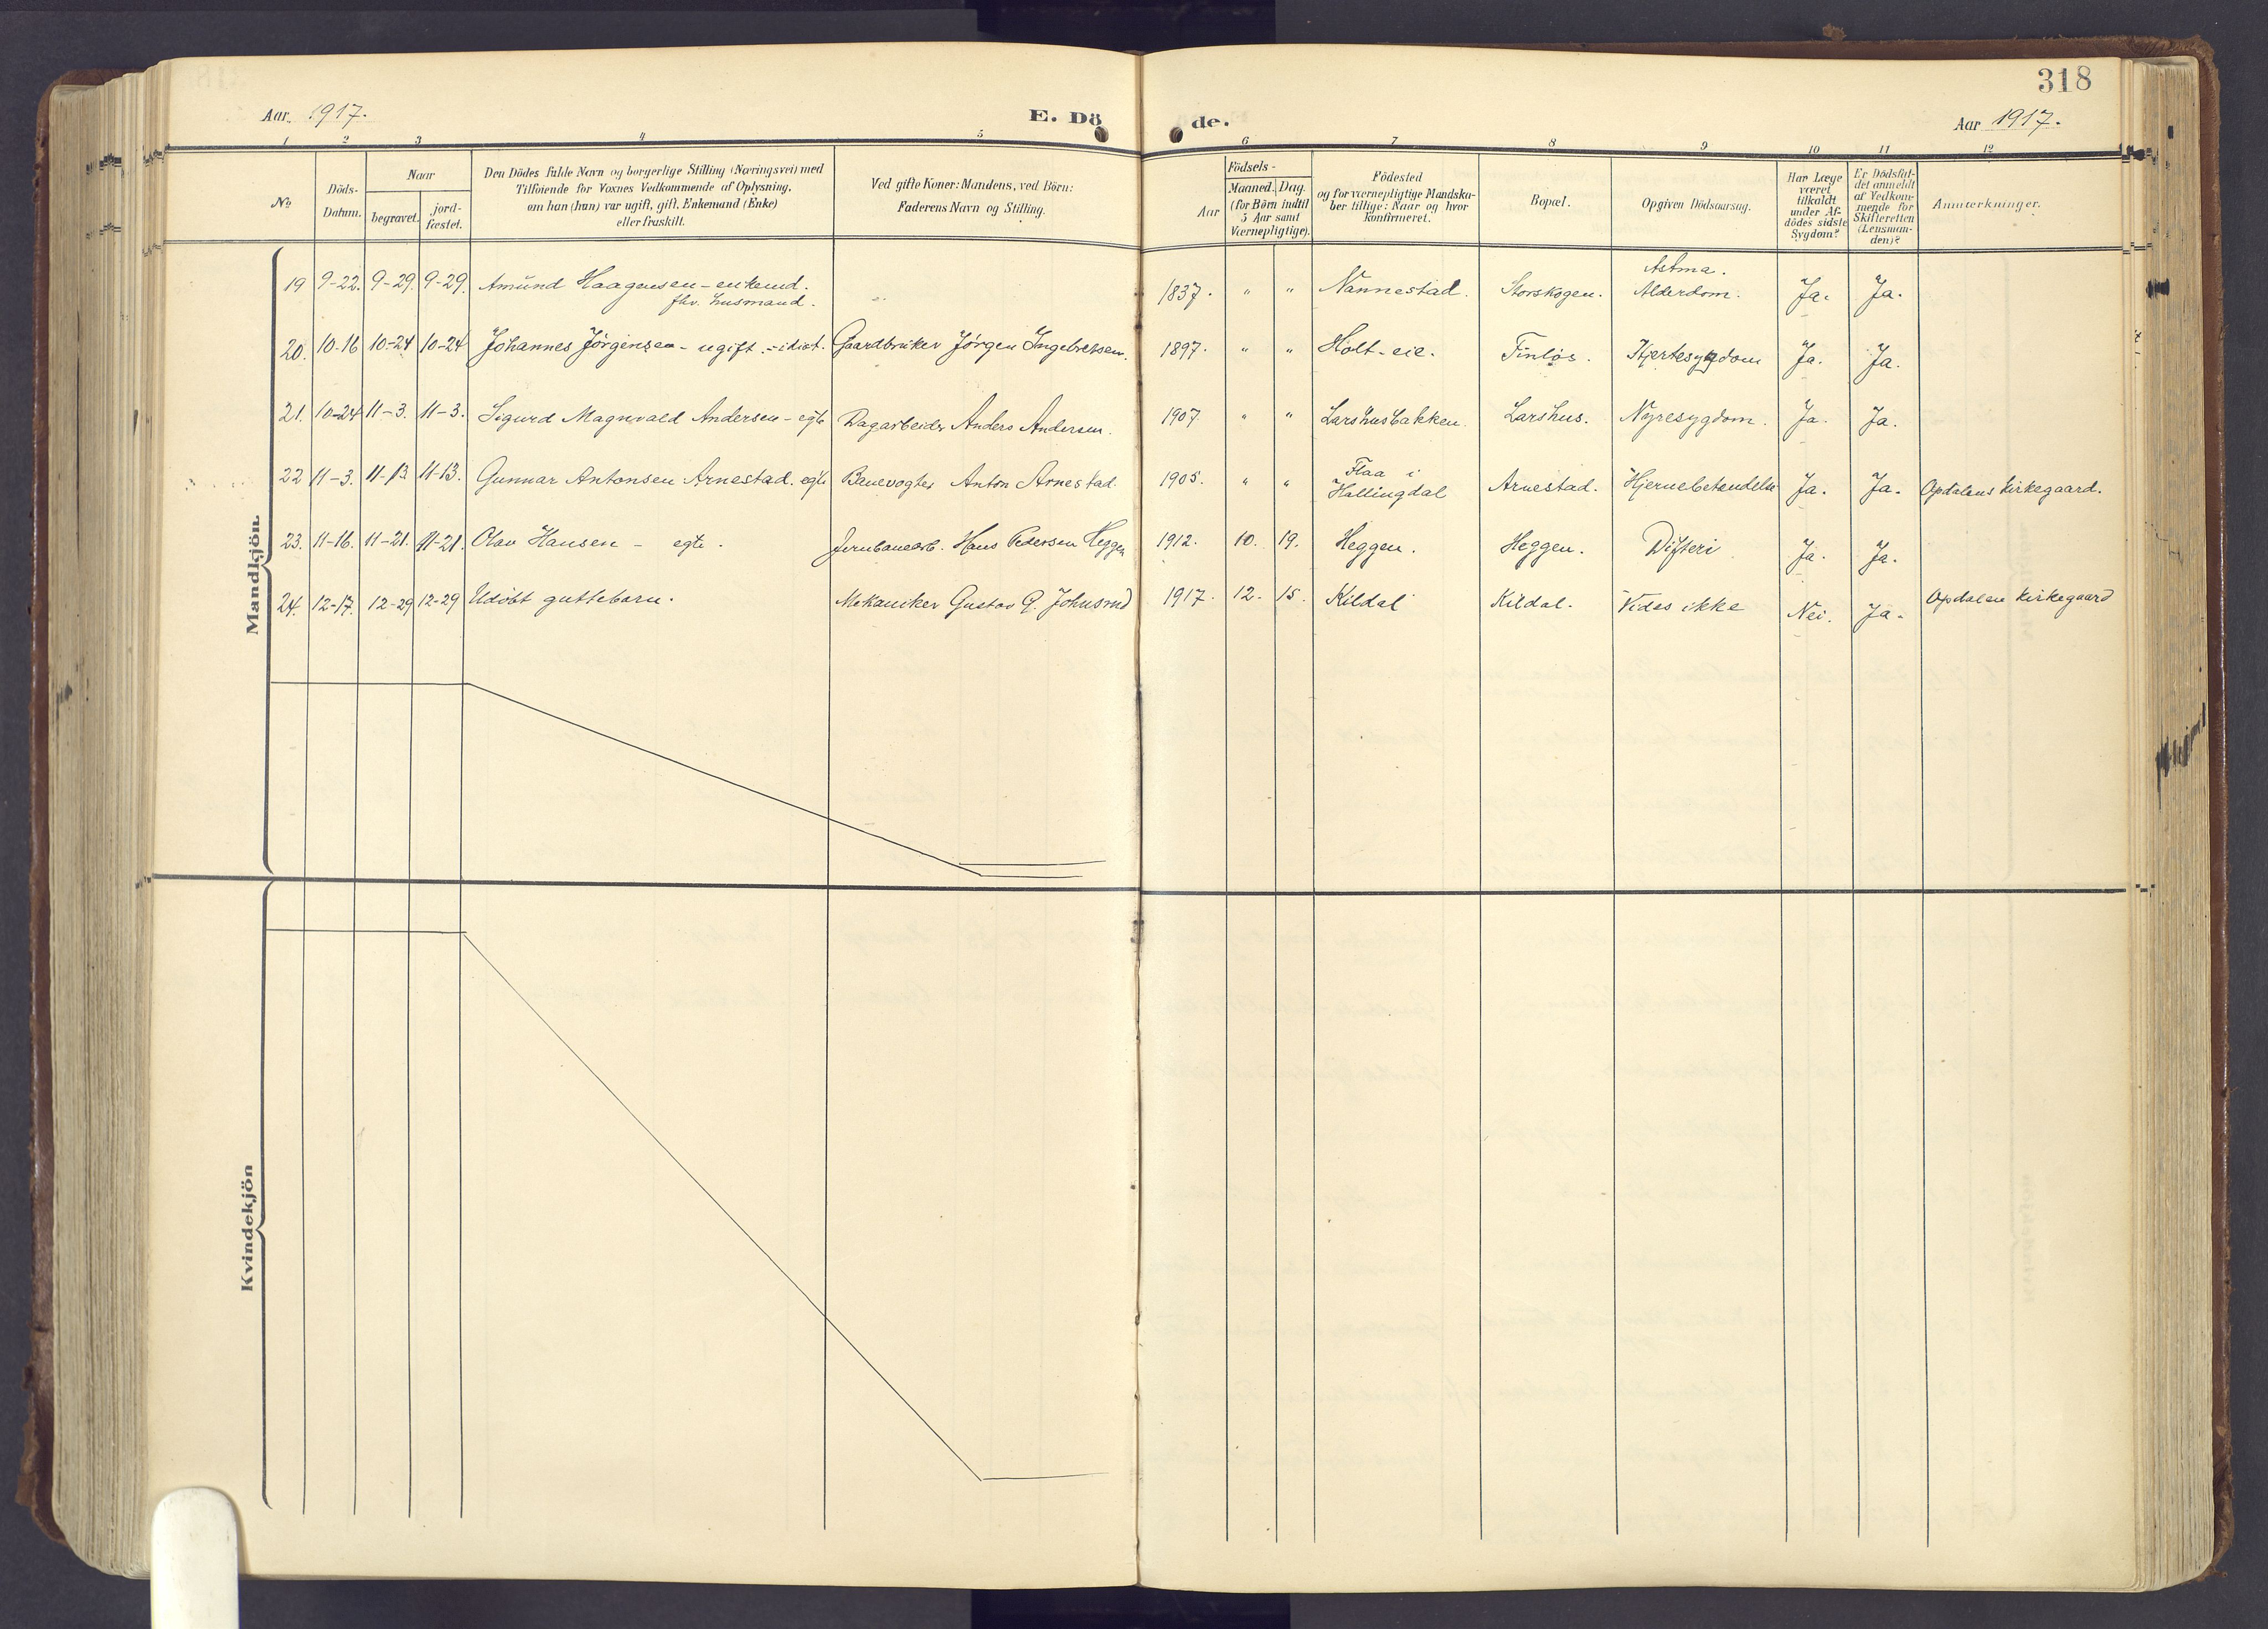 318
Aar. 1917.
E. Dö
de.
Aar 1917.
1 2 3 4 5 6 7 8 9 10 11 12
No
Döds-
Datum.
Naar
begravet.
jord-
fæstet.
Den Dödes fulde Navn og borgerlige Stilling (Næringsvei) med
Tilföiende for Voxnes Vedkommende af Oplysning,
om han (hun) var ugift, gift, Enkemand (Enke)
eller fraskilt.
Ved gifte Koner: Mandens, ved Börn:
Faderens Navn og Stilling.
Födsels-
Aar
Maaned. Dag.
(for Börn indtil
5 Aar samt
Værnepligtige).
Födested
og for værnepligtige Mandska-
ber tillige: Naar og hvor
konfirmeret.
Bopæl.
Opgiven Dödsaarsag.
Har Læge
været
tilkaldt
under Af-
dödes sidste
Sygdom?
Er Dödsfal-
det anmeldt
af Vedkom-
mende for
Skifteretten
(Lensman-
den)?
Anmærkninger.
Mandkjön.
19 9-22. 9-29. 9-29. Amund Haagensen - enkemd. 1837. " " Nannestad. Storskogen. Astma. Ja. Ja.
fhv. husmand. Alderdom.
20. 10-16 10-24 10-24 Johannes Jörgensen - ugift. - idiot. Gaardbruker Jörgen Ingebretsen. 1897. " " Holt-eie. Finlös. Hjertesygdom Ja. Ja.
21. 10-24 11-3. 11-3. Sigurd Magnvald Andersen - egte Dagarbeider Anders Andersen. 1907. " " Larshusbakken. Larshus. Nyresygdom. Ja. Ja.
22 11-3. 11-13 11-13. Gunnar Antonsen Arnestad. egte Banevogter Anton Arnestad. 1905. " " Flaa i
Hallingdal Arnestad. Hjernebetendelse Ja. Ja. Opdalens kirkegaard.
23. 11-16. 11-21. 11-21. Olav Hansen - egte. Jernbanearb. Hans Pedersen Heggen 1912. 10. 19. Heggen. Heggen. Difteri Ja. Ja.
24. 12-17. 12-29 12-29 Udöbt guttebarn. Mekaniker Gustav G. Johnsrud 1917. 12. 15. Kildal Kildal. Vides ikke Nei. Ja. Opdalen kirkegaard
Kvindekjön